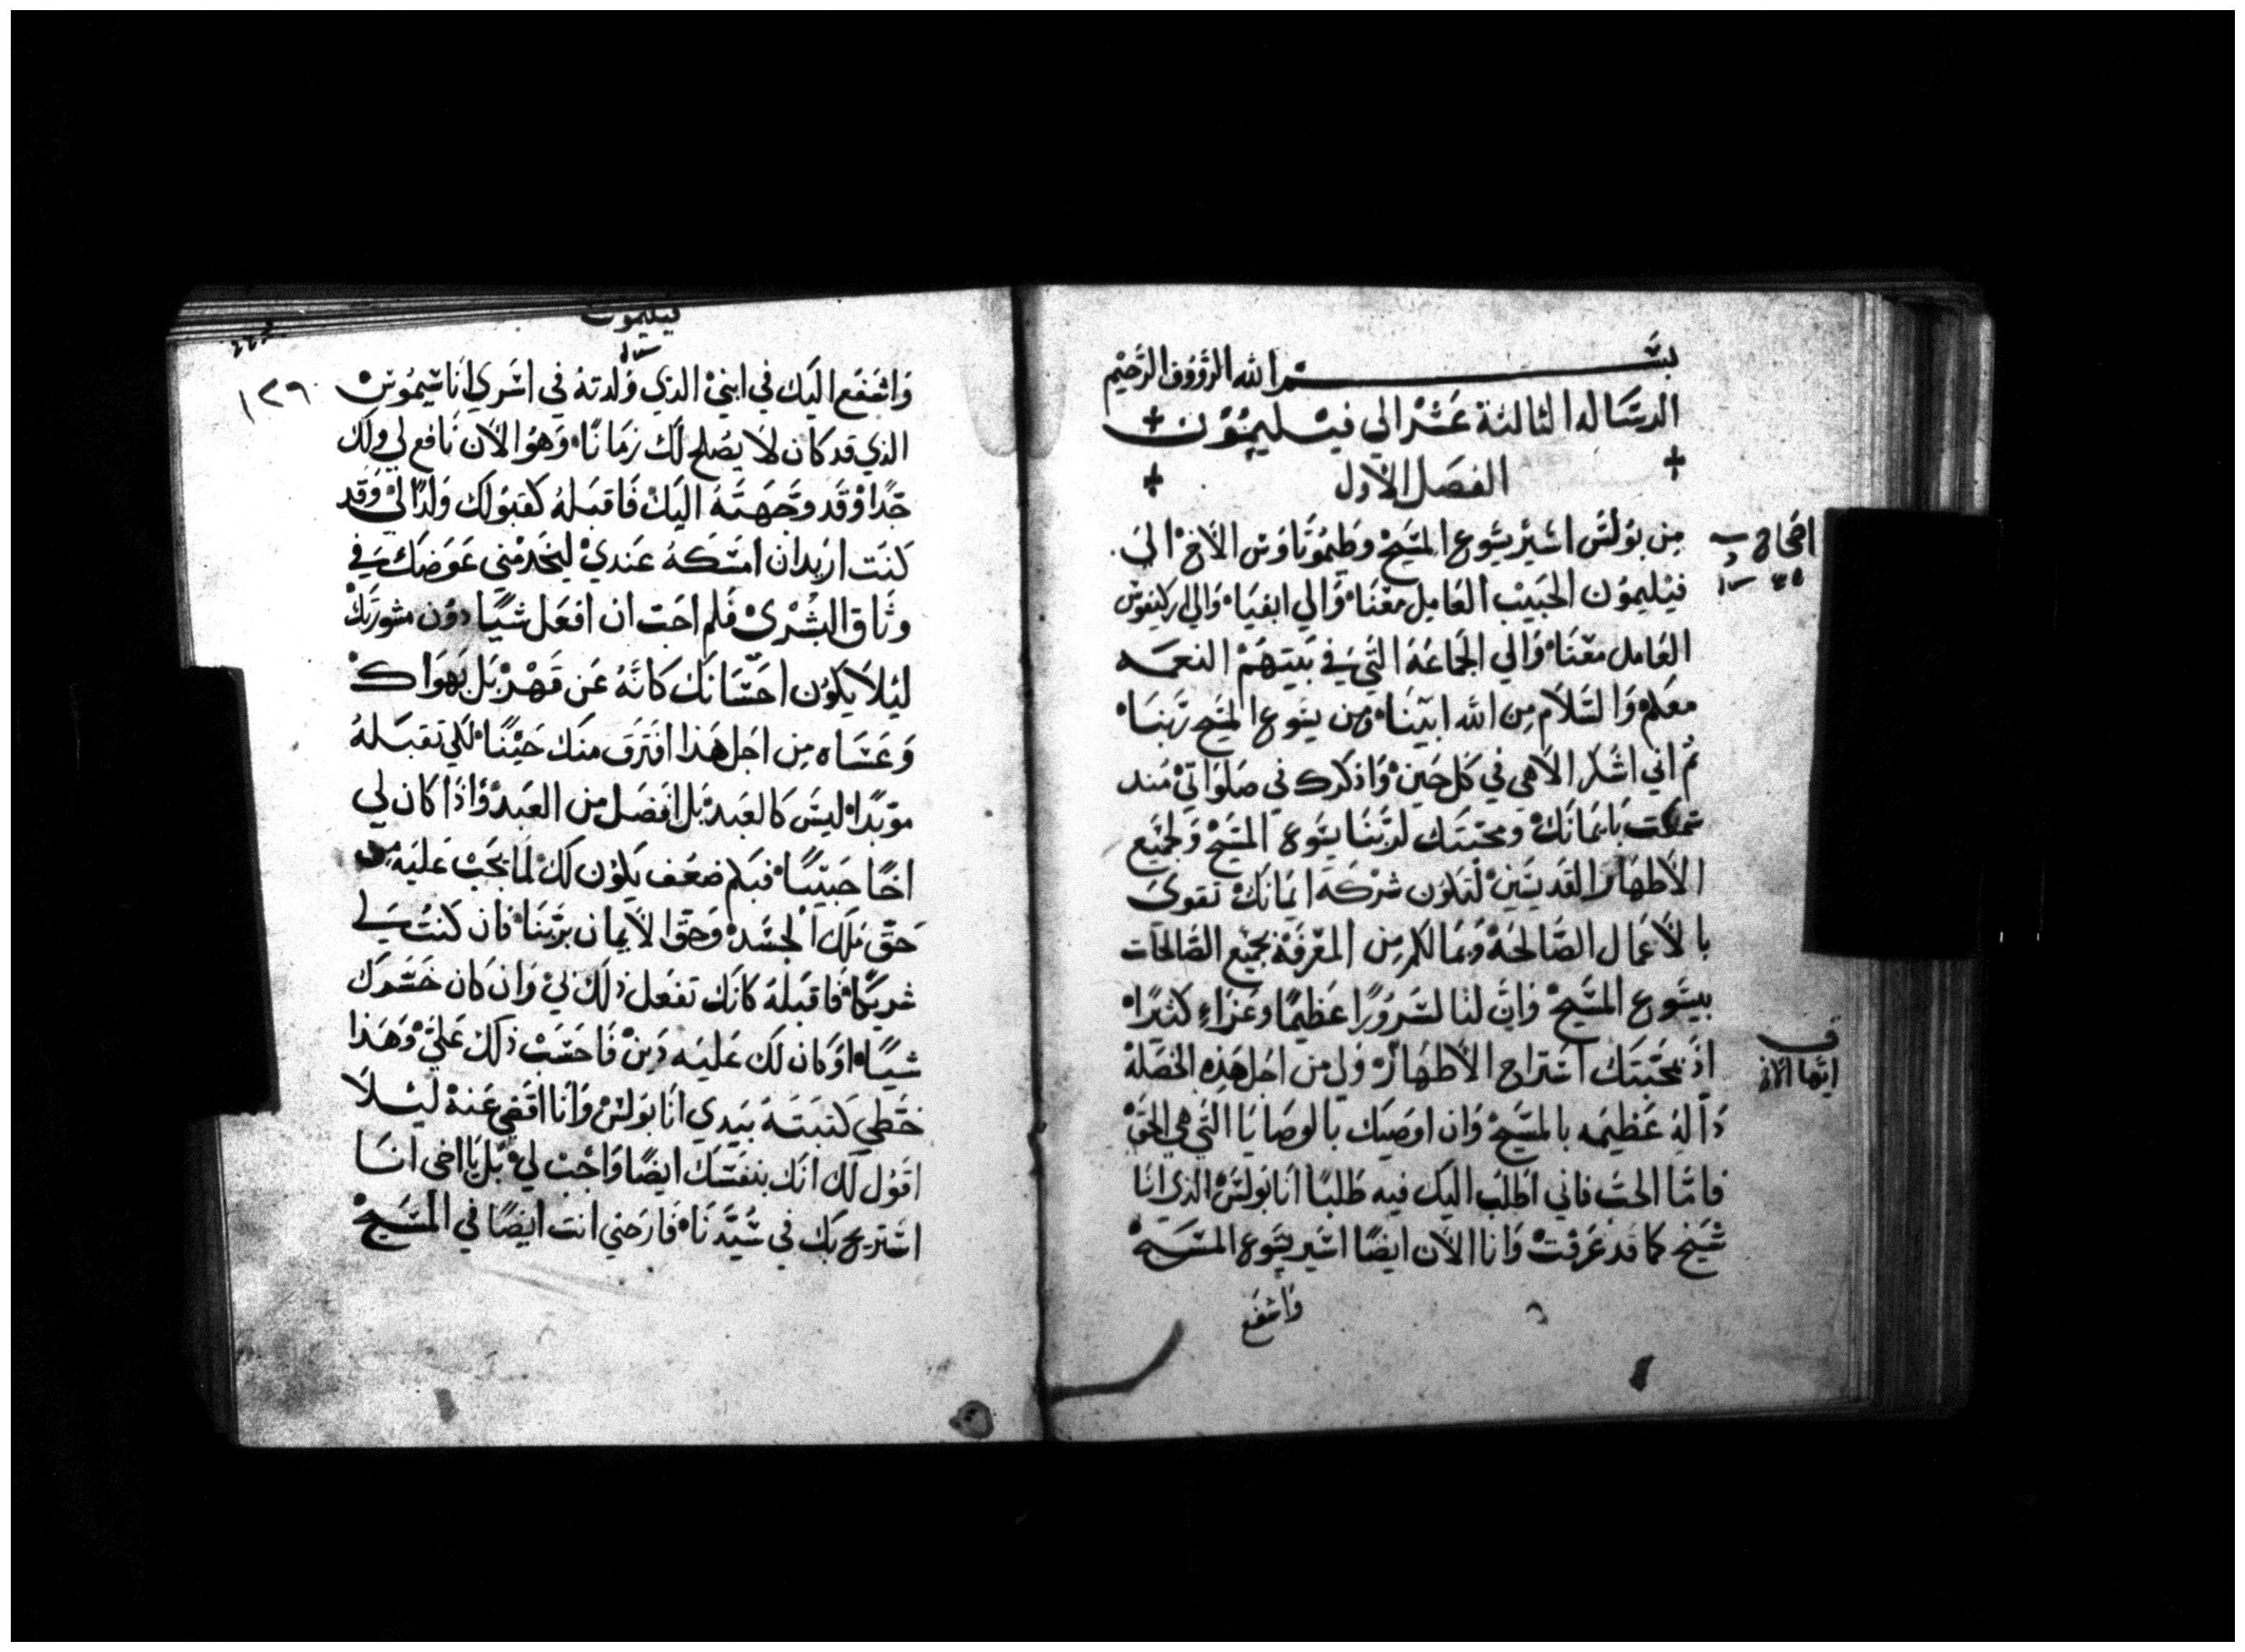 بسم الله الرووف الرحيم
الرساله الثالثة عشر الي فيليمون
الفصل الاول
من بولس اسير يسوع المسيح وطيموتاوس الاخ الى
فيليمون الحبيب العامل معنا والي ابفيا والي اركيفوس
العامل معنا والي الجماعة التي في بيتهم النعمه
معكم والسلام من الله ابينا ومن يسوع المسيح ربنا
ثم اني اشكر الاهي في كل حين واذكرك في صلواتي منذ
سمعت بايمانك ومحبتك لربنا يسوع المسيح ولجميع
الاطهار القديسين لتكون شركة ايمانك تقوى
بالاعمال الصالحة وبما لكم من المعرفة بجميع الصالحات
بيسوع المسيح وان لنا لسرورا عظيما وعزاء كثيرا
اذ بمحبتك استراح الاطهار ولي من اجل هذه الخصلة
دالة عظيمه بالمسيح وان اوصيك بالوصايا التي هي الحق
فاما الحب فاني اطلب اليك فيه طلبا انا بولس الذي انا
شيخ كما قد عرفت وانا الان ايضا اسير يسوع المسيح
واشفع
اصحاح
ايها الاخ
فيليمون
١٢٩
واشفع اليك في ابني الذي ولدته في اسري اناسيموس
الذي قد كان لا يصلح لك زمانا وهو الان نافع لي ولك
جدا وقد وجهته اليك فاقبله كقبولك ولدا لي وقد
كنت اريد ان امسكه عندي ليخدمني عوضك في
وثاق البشرى فلم احب ان افعل شيا دون مشورتك
ليلا يكون احسانك كانه عن قهر بل بهواك
وعساه من اجل هذا افترق منك حينا لكي تقبله
موبدا ليس كالعبد بل افضل من العبد واذا كان لي
اخا حبيبا فبكم ضعف يكون لك لما يجب عليه من
حق ملك الجسد وحق الايمان بربنا فان كنت لي
شريكا فاقبله كانك تفعل ذلك لي وان كان خسرك
شيا او كان لك عليه دين فاحسب ذلك علي وهذا
خطي كتبته بيدي انا بولس وانا اقضي عنه ليلا
اقول لك انك بنفسك ايضا واجب لي بل يا اخي انا
استريح بك في سيدنا فارحني انت ايضا في المسيح